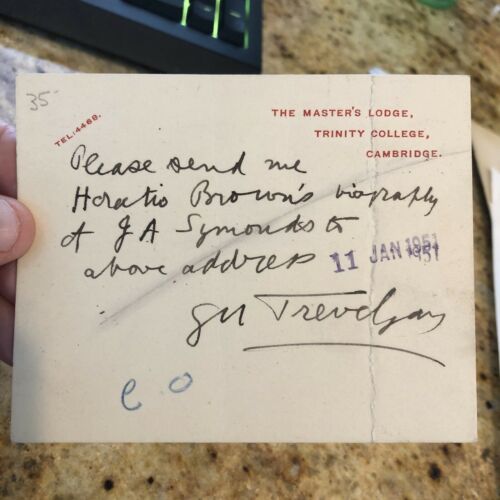 35
TEL: 4488.
THE MASTER'S LODGE,
TRINITY COLLEGE,
CAMBRIDGE.
Please send me
Horatio Brown's biography
of J A Symonds to
above address
11 JAN 1951
GM Trevelyan
e o